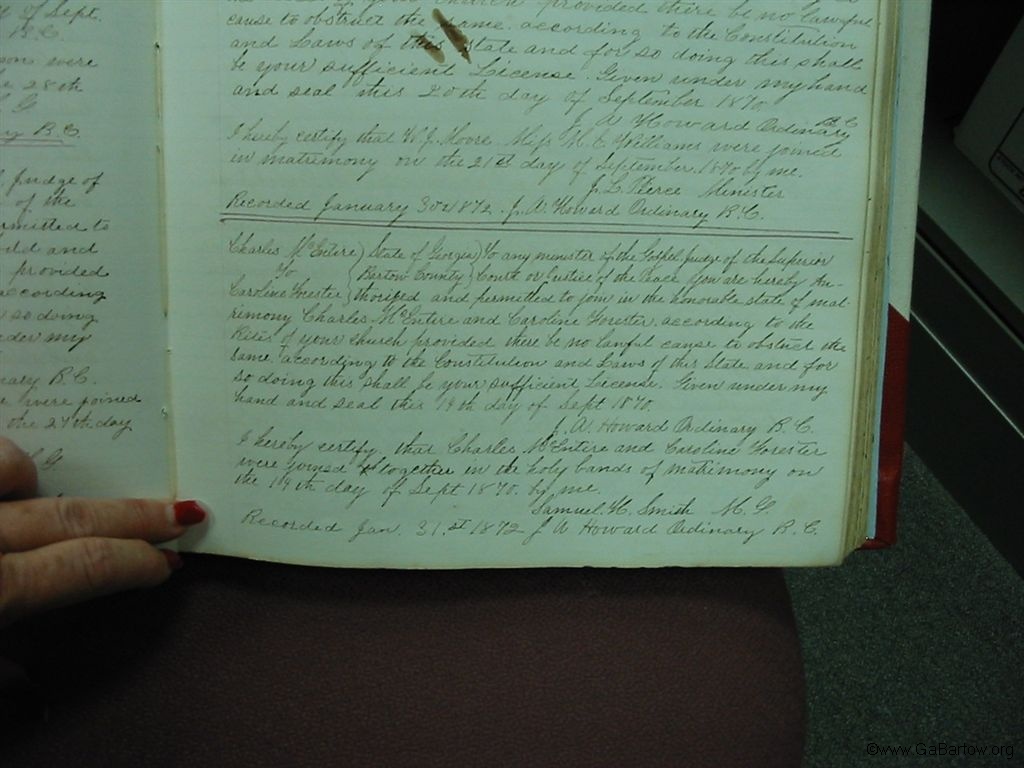 y of Sept.
B.C.
sons were
e 28th
G
y B.C.
judge of
of the
rmitted to
ld and
provided
according
so doing
nder my
nary B.C.
were joined
the 27th day
church provided there be no lawful
cause to obstruct the same according to the Constitution
and Laws of this State and for so doing this shall
be your sufficient License. Given under my hand
and seal this 20th day of September 1870.
J. A. Howard Ordinary B C
I hereby certify that W. J. Moore Miss M. E. Williams were joined
in matrimony on the 21st day of September 1870 by me.
J. L. Pierce Minister
Recorded January 30 1872. J. A. Howard Ordinary B.C.
Charles McEntire } State of Georgia } To any minister of the Gospel judge of the Superior
To { Bartow County } Court or Justice of the Peace You are hereby Au-
Caroline Forester } thorised and permitted to join in the honorable state of mat-
rimony Charles McEntire and Caroline Forester according to the
Rites of your church provided there be no lawful cause to obstruct the
same according to the Constitution and Laws of this State and for
so doing this shall be your sufficient License. Given under my
hand and seal this 19th day of Sept 1870.
J. A. Howard Ordinary B. C.
I hereby certify that Charles McEntire and Caroline Forester
were joined together in the holy bands of matrimony on
the 19th day of Sept 1870. by me.
Samuel H. Smith M. G
Recorded Jan. 31.st 1872 J A Howard Ordinary B. C.
©www.GaBartow.org